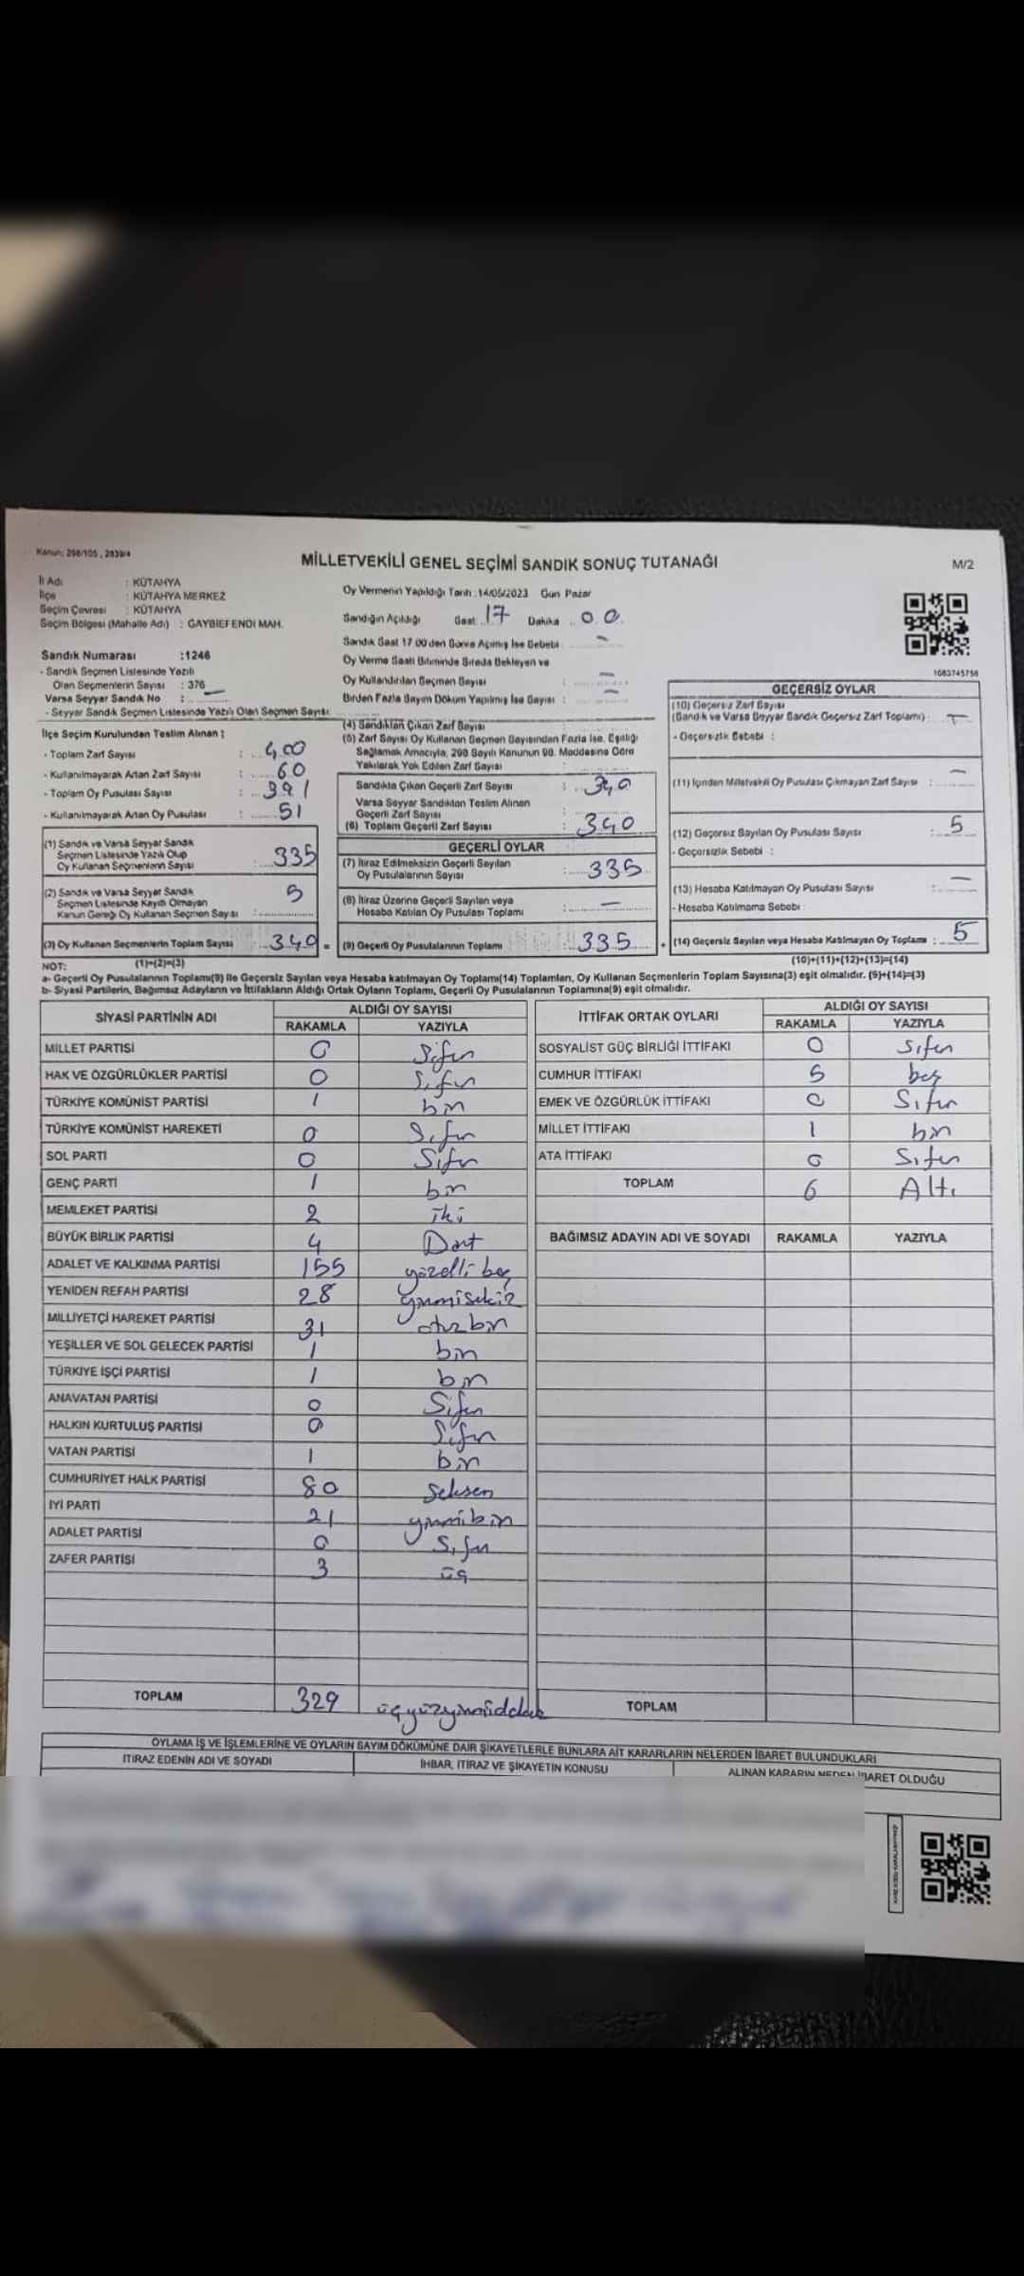 Kanun: 298/105, 2839/4
MİLLETVEKİLİ GENEL SEÇİMİ SANDIK SONUÇ TUTANAĞI
M/2
İl Adı : KÜTAHYA
İlçe : KÜTAHYA MERKEZ
Seçim Çevresi : KÜTAHYA
Seçim Bölgesi (Mahalle Adı) : GAYBİEFENDİ MAH.
Oy Vermenin Yapıldığı Tarih : 14/05/2023 Gün Pazar
Sandığın Açıldığı Saat 17 Dakika 00
Sandık Saat 17.00'den Sonra Açılmış İse Sebebi : -
Oy Verme Saati Bitiminde Sırada Bekleyen ve
Oy Kullandırılan Seçmen Sayısı : -
Birden Fazla Sayım Döküm Yapılmış İse Sayısı : -
1683745756
Sandık Numarası :1246
- Sandık Seçmen Listesinde Yazılı
Olan Seçmenlerin Sayısı : 376
Varsa Seyyar Sandık No : -
- Seyyar Sandık Seçmen Listesinde Yazılı Olan Seçmen Sayısı:
İlçe Seçim Kurulundan Teslim Alınan :
- Toplam Zarf Sayısı : 400
- Kullanılmayarak Artan Zarf Sayısı : 60
- Toplam Oy Pusulası Sayısı : 391
- Kullanılmayarak Artan Oy Pusulası : 51
(1) Sandık ve Varsa Seyyar Sandık
Seçmen Listesinde Yazılı Olup
Oy Kullanan Seçmenlerin Sayısı : 335
(2) Sandık ve Varsa Seyyar Sandık
Seçmen Listesinde Kayıtlı Olmayan
Kanun Gereği Oy Kullanan Seçmen Sayısı : 5
(3) Oy Kullanan Seçmenlerin Toplam Sayısı : 340 =
(1)+(2)=(3)
(4) Sandıktan Çıkan Zarf Sayısı :
(5) Zarf Sayısı Oy Kullanan Seçmen Sayısından Fazla İse, Eşitliği
Sağlamak Amacıyla, 298 Sayılı Kanunun 98. Maddesine Göre
Yakılarak Yok Edilen Zarf Sayısı :
Sandıkta Çıkan Geçerli Zarf Sayısı : 340
Varsa Seyyar Sandıktan Teslim Alınan
Geçerli Zarf Sayısı :
(6) Toplam Geçerli Zarf Sayısı : 340
GEÇERLİ OYLAR
(7) İtiraz Edilmeksizin Geçerli Sayılan
Oy Pusulalarının Sayısı : 335
(8) İtiraz Üzerine Geçerli Sayılan veya
Hesaba Katılan Oy Pusulası Toplamı : -
(9) Geçerli Oy Pusulalarının Toplamı : 335 +
GEÇERSİZ OYLAR
(10) Geçersiz Zarf Sayısı
(Sandık ve Varsa Seyyar Sandık Geçersiz Zarf Toplamı) : -
- Geçersizlik Sebebi :
(11) İçinden Milletvekili Oy Pusulası Çıkmayan Zarf Sayısı : -
(12) Geçersiz Sayılan Oy Pusulası Sayısı : 5
- Geçersizlik Sebebi :
(13) Hesaba Katılmayan Oy Pusulası Sayısı : -
- Hesaba Katılmama Sebebi :
(14) Geçersiz Sayılan veya Hesaba Katılmayan Oy Toplamı : 5
(10)+(11)+(12)+(13)=(14)
NOT:
a- Geçerli Oy Pusulalarının Toplamı(9) ile Geçersiz Sayılan veya Hesaba katılmayan Oy Toplamı(14) Toplamları, Oy Kullanan Seçmenlerin Toplam Sayısına(3) eşit olmalıdır. (9)+(14)=(3)
b- Siyasi Partilerin, Bağımsız Adayların ve İttifakların Aldığı Ortak Oyların Toplamı, Geçerli Oy Pusulalarının Toplamına(9) eşit olmalıdır.
SİYASİ PARTİNİN ADI ALDIĞI OY SAYISI
RAKAMLA YAZIYLA
MİLLET PARTİSİ 0 Sıfır
HAK VE ÖZGÜRLÜKLER PARTİSİ 0 Sıfır
TÜRKİYE KOMÜNİST PARTİSİ 1 bir
TÜRKİYE KOMÜNİST HAREKETİ 0 Sıfır
SOL PARTİ 0 Sıfır
GENÇ PARTİ 1 bir
MEMLEKET PARTİSİ 2 iki
BÜYÜK BİRLİK PARTİSİ 4 Dört
ADALET VE KALKINMA PARTİSİ 155 yüzelli beş
YENİDEN REFAH PARTİSİ 28 yirmisekiz
MİLLİYETÇİ HAREKET PARTİSİ 31 otuzbir
YEŞİLLER VE SOL GELECEK PARTİSİ 1 bir
TÜRKİYE İŞÇİ PARTİSİ 1 bir
ANAVATAN PARTİSİ 0 Sıfır
HALKIN KURTULUŞ PARTİSİ 0 Sıfır
VATAN PARTİSİ 1 bir
CUMHURİYET HALK PARTİSİ 80 Seksen
İYİ PARTİ 21 yirmibir
ADALET PARTİSİ 0 Sıfır
ZAFER PARTİSİ 3 üç
TOPLAM 329
İTTİFAK ORTAK OYLARI ALDIĞI OY SAYISI
RAKAMLA YAZIYLA
SOSYALİST GÜÇ BİRLİĞİ İTTİFAKI 0 Sıfır
CUMHUR İTTİFAKI 5 beş
EMEK VE ÖZGÜRLÜK İTTİFAKI 0 Sıfır
MİLLET İTTİFAKI 1 bir
ATA İTTİFAKI 0 Sıfır
TOPLAM 6 Altı
BAĞIMSIZ ADAYIN ADI VE SOYADI RAKAMLA YAZIYLA
TOPLAM
OYLAMA İŞ VE İŞLEMLERİNE VE OYLARIN SAYIM DÖKÜMÜNE DAİR ŞİKAYETLERLE BUNLARA AİT KARARLARIN NELERDEN İBARET BULUNDUKLARI
İTİRAZ EDENİN ADI VE SOYADI
İHBAR, İTİRAZ VE ŞİKAYETİN KONUSU
ALINAN KARARIN NEDEN İBARET OLDUĞU